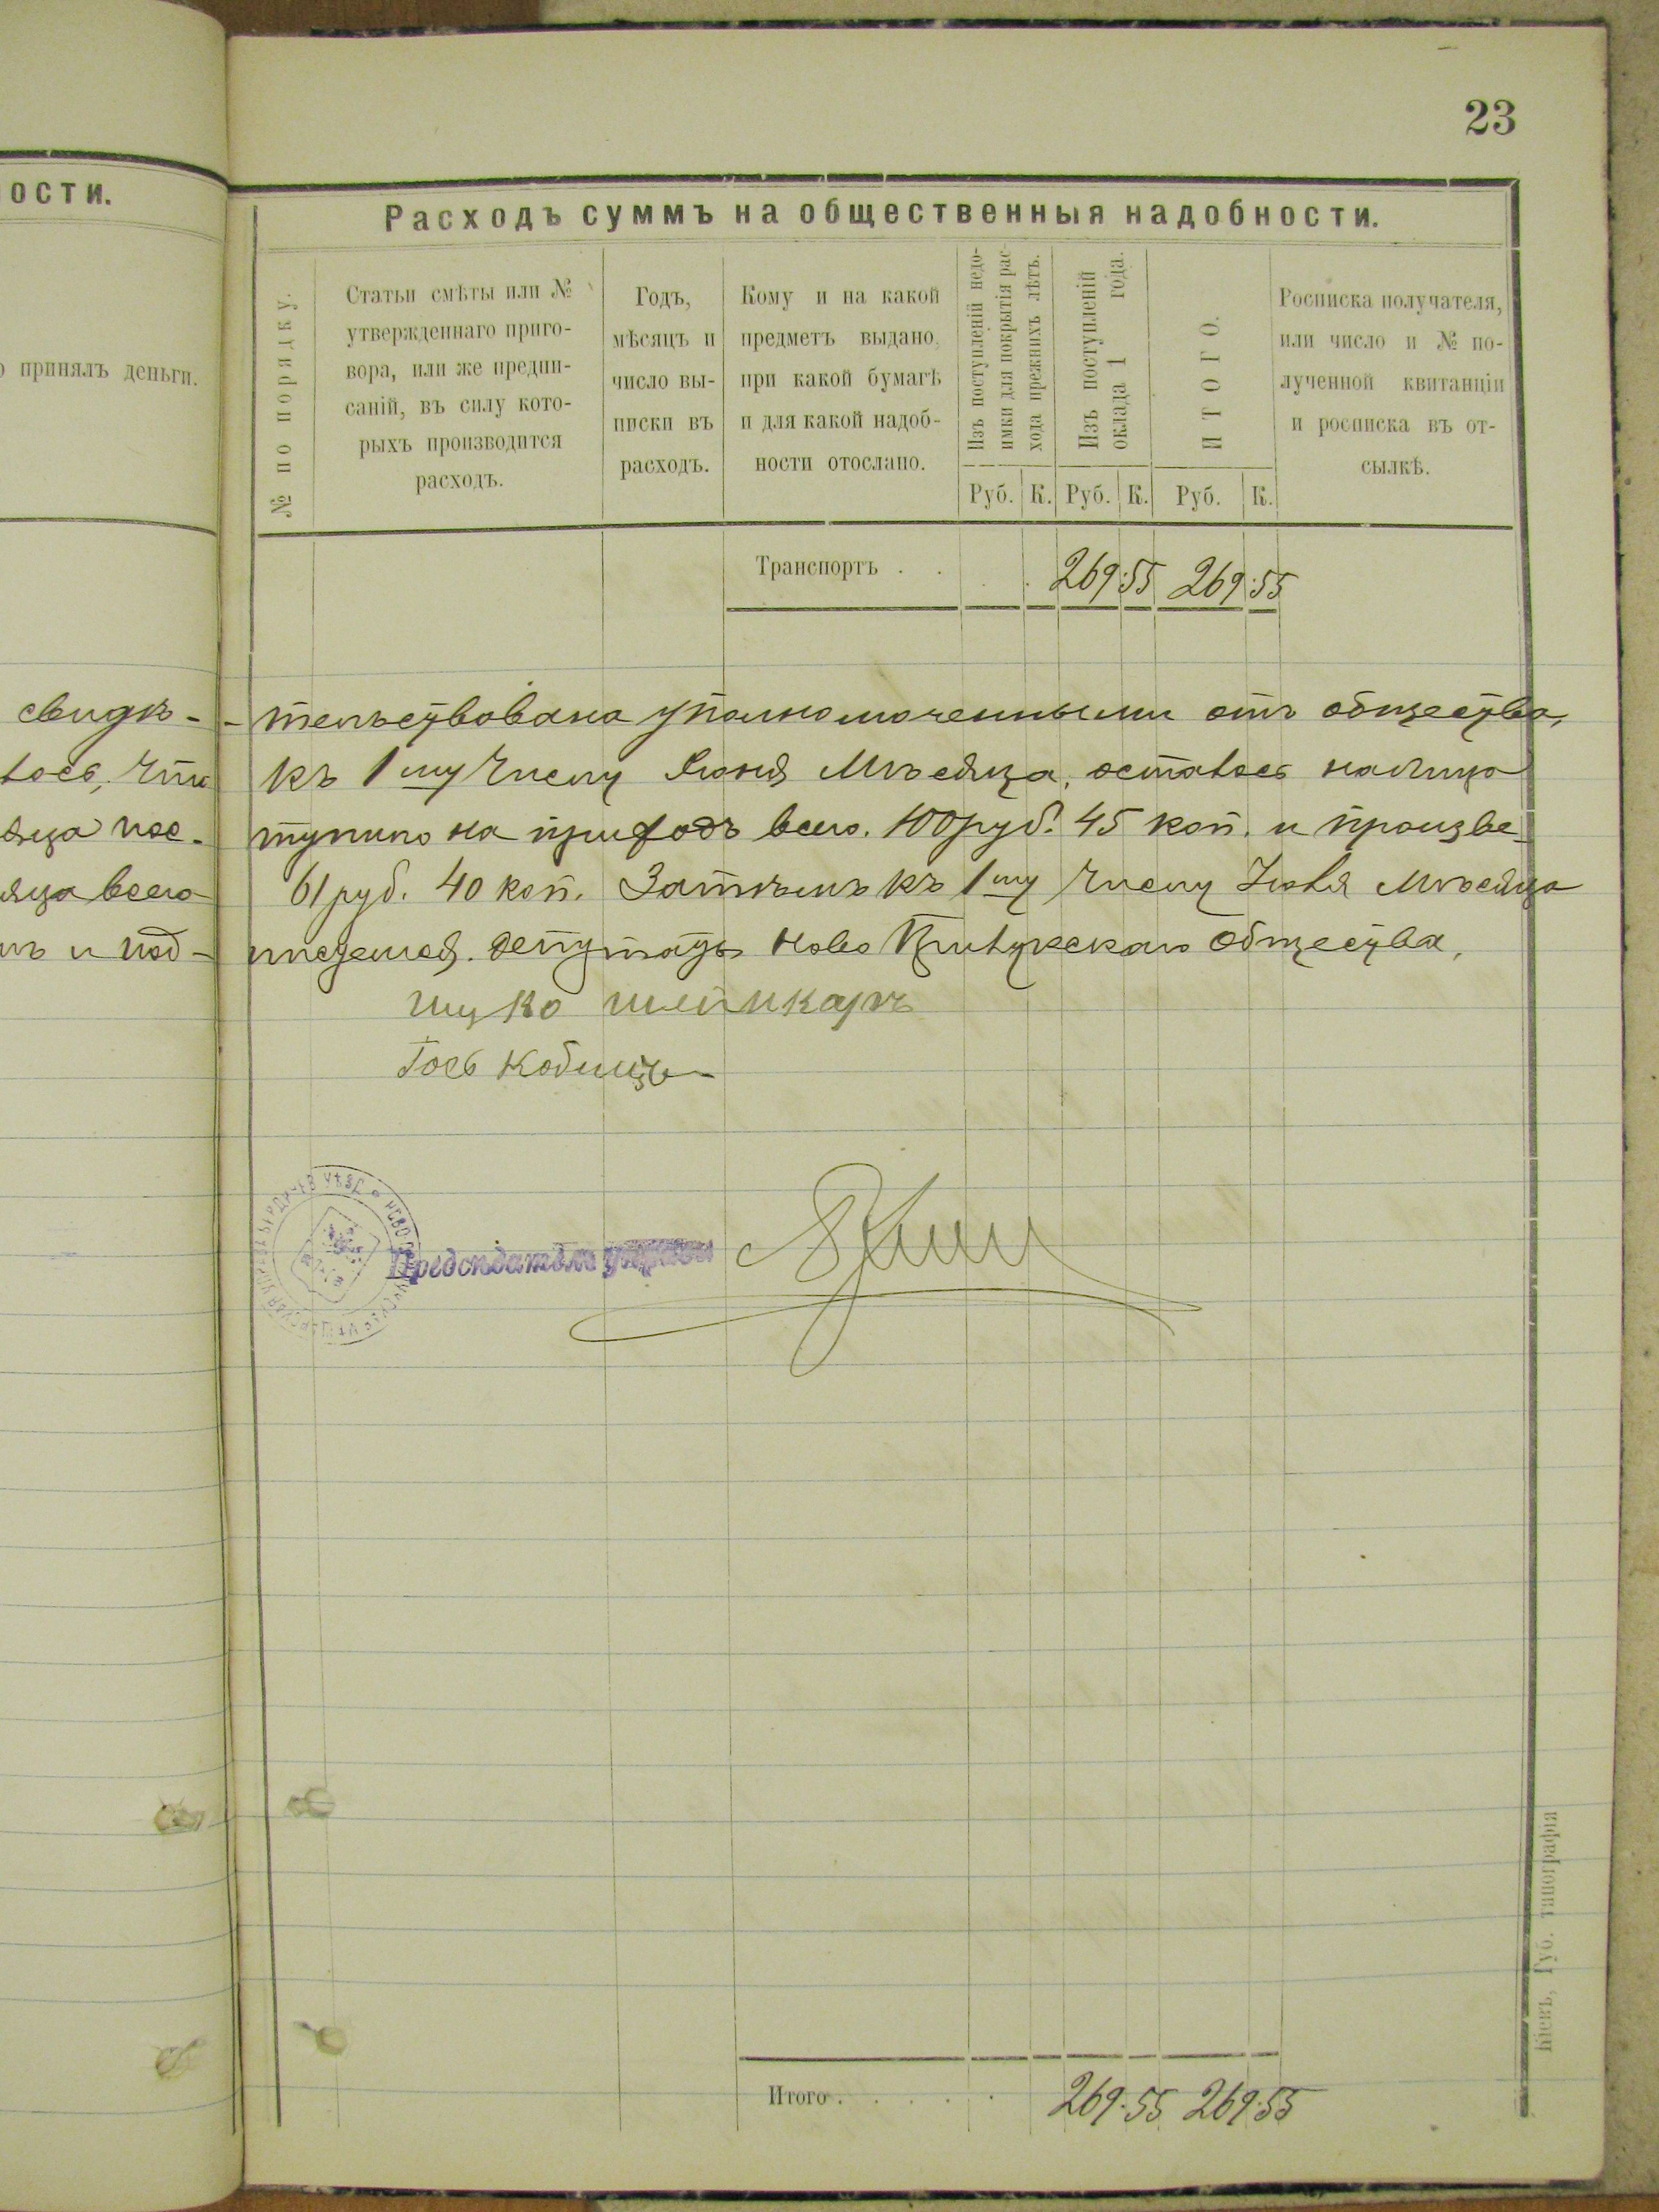 23
ости.
принялъ деньги.
Расходъ суммъ на общественныя надобности.
№ по порядку.
Статьи смѣты или №
утвержденнаго приго-
вора, или же предпи-
саній, въ силу кото-
рыхъ производится
расходъ.
Годъ,
мѣсяцъ и
число вы-
писки въ
расходъ.
Кому и на какой
предметъ выдано,
при какой бумагѣ
и для какой надоб-
ности отослано.
Изъ поступленій недо-
имки для покрытія рас-
хода прежнихъ лѣтъ.
Изъ поступленій
оклада 1 года.
ИТОГО.
Росписка получателя,
или число и № по-
лученной квитанціи
и росписка въ от-
сылкѣ.
Руб. К. Руб. К. Руб. К.
Транспортъ . . . . 269.55 269.55
свидѣ- - тельствована уполномоченными отъ общества,
лось, что къ 1му числу Іюня Мѣсяца, осталось налицо
яца пос- тупило на приходъ всего 100 руб. 45 коп. и произве-
яца всего 61 руб. 40 коп. Затѣмъ къ 1му числу Іюля Мѣсяца
ъ и под- писуемся. депутаты Ново общества,
Предсѣдатель управы
Итого . . . . . 269.55 269.55
Кіевъ, Губ. типографія